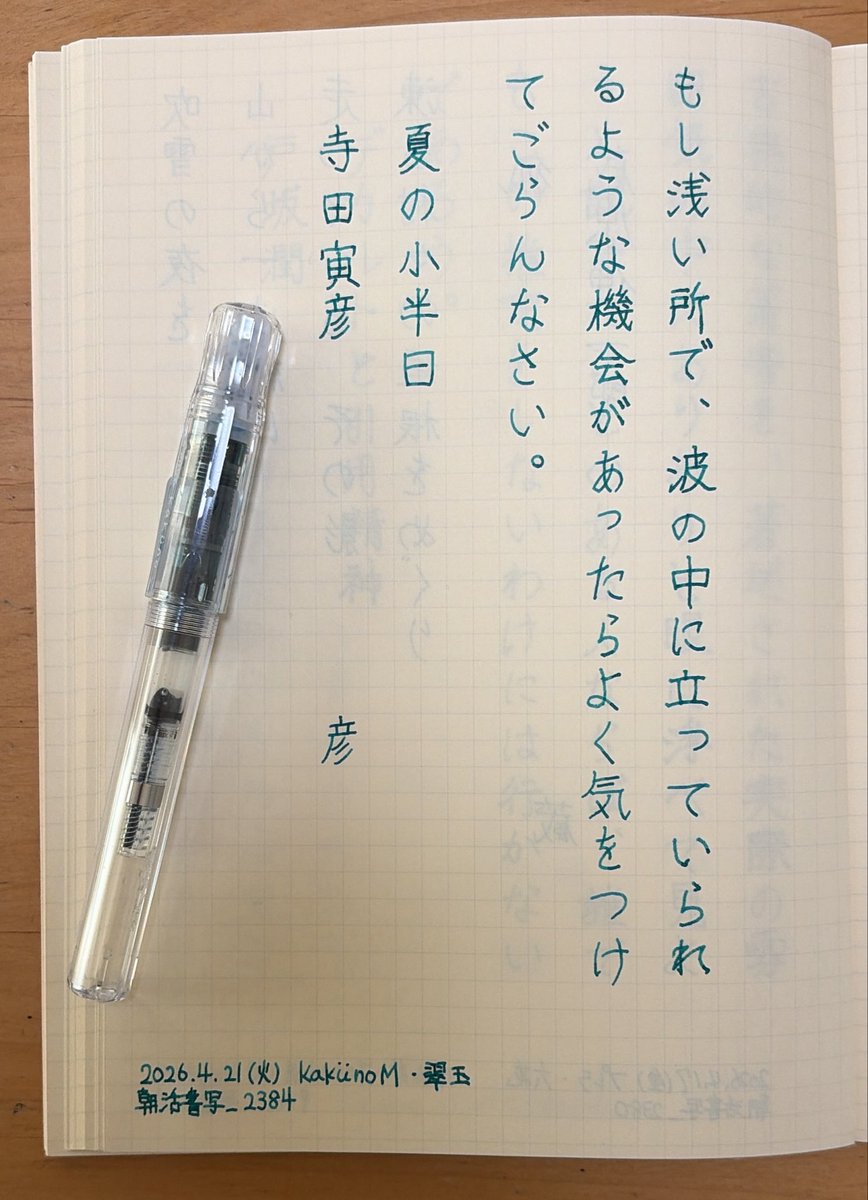 もし浅い所で、波の中に立っていられ
るような機会があったらよく気をつけ
てごらんなさい。
夏の小半日
寺田寅彦
彦
2026.4.21(火) kakünoM・翠玉
朝活書写_2384